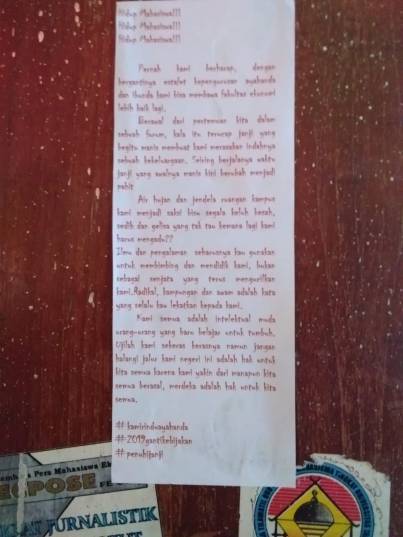 Hidup Mahasiswa!!!
Hidup Mahasiswa!!!
Hidup Mahasiswa!!!
Pernah kami berharap, dengan
bergantinya estalet kepengurusan ayahanda
dan ibunda kami bisa membawa fakultas ekonomi
lebih baik lagi.
Berawal dari pertemuan kita dalam
sebuah forum, kala itu terucap janji yang
begitu manis membuat kami merasakan indahnya
sebuah kekeluargaan. Seiring berjalannya waktu
janji yang awalnya manis kini berubah menjadi
pahit
Air hujan dan jendela ruangan kampus
kami menjadi saksi bisu segala keluh kesah,
sedih dan gelisa yang tak tau kemana lagi kami
harus mengadu??
Ilmu dan pengalaman seharusnya kau gunakan
untuk membimbing dan mendidik kami, bukan
sebagai senjata yang terus mengucilkan
kami.Radikal, kampungan dan awam adalah kata
yang selalu kau lekatkan kepada kami.
Kami semua adalah intelektual muda
orang-orang yang baru belajar untuk tumbuh.
Ujilah kami sekeras kerasnya namun jangan
halangi jalur kami negeri ini adalah hak untuk
kita semua karena kami yakin dari manapun kita
semua berasal, merdeka adalah hak untuk kita
semua.
# kamirinduayahanda
# 2019gantikebijakan
# penuhijanji
Pers Mahasiswa
EXPOSE
JURNALISTIK